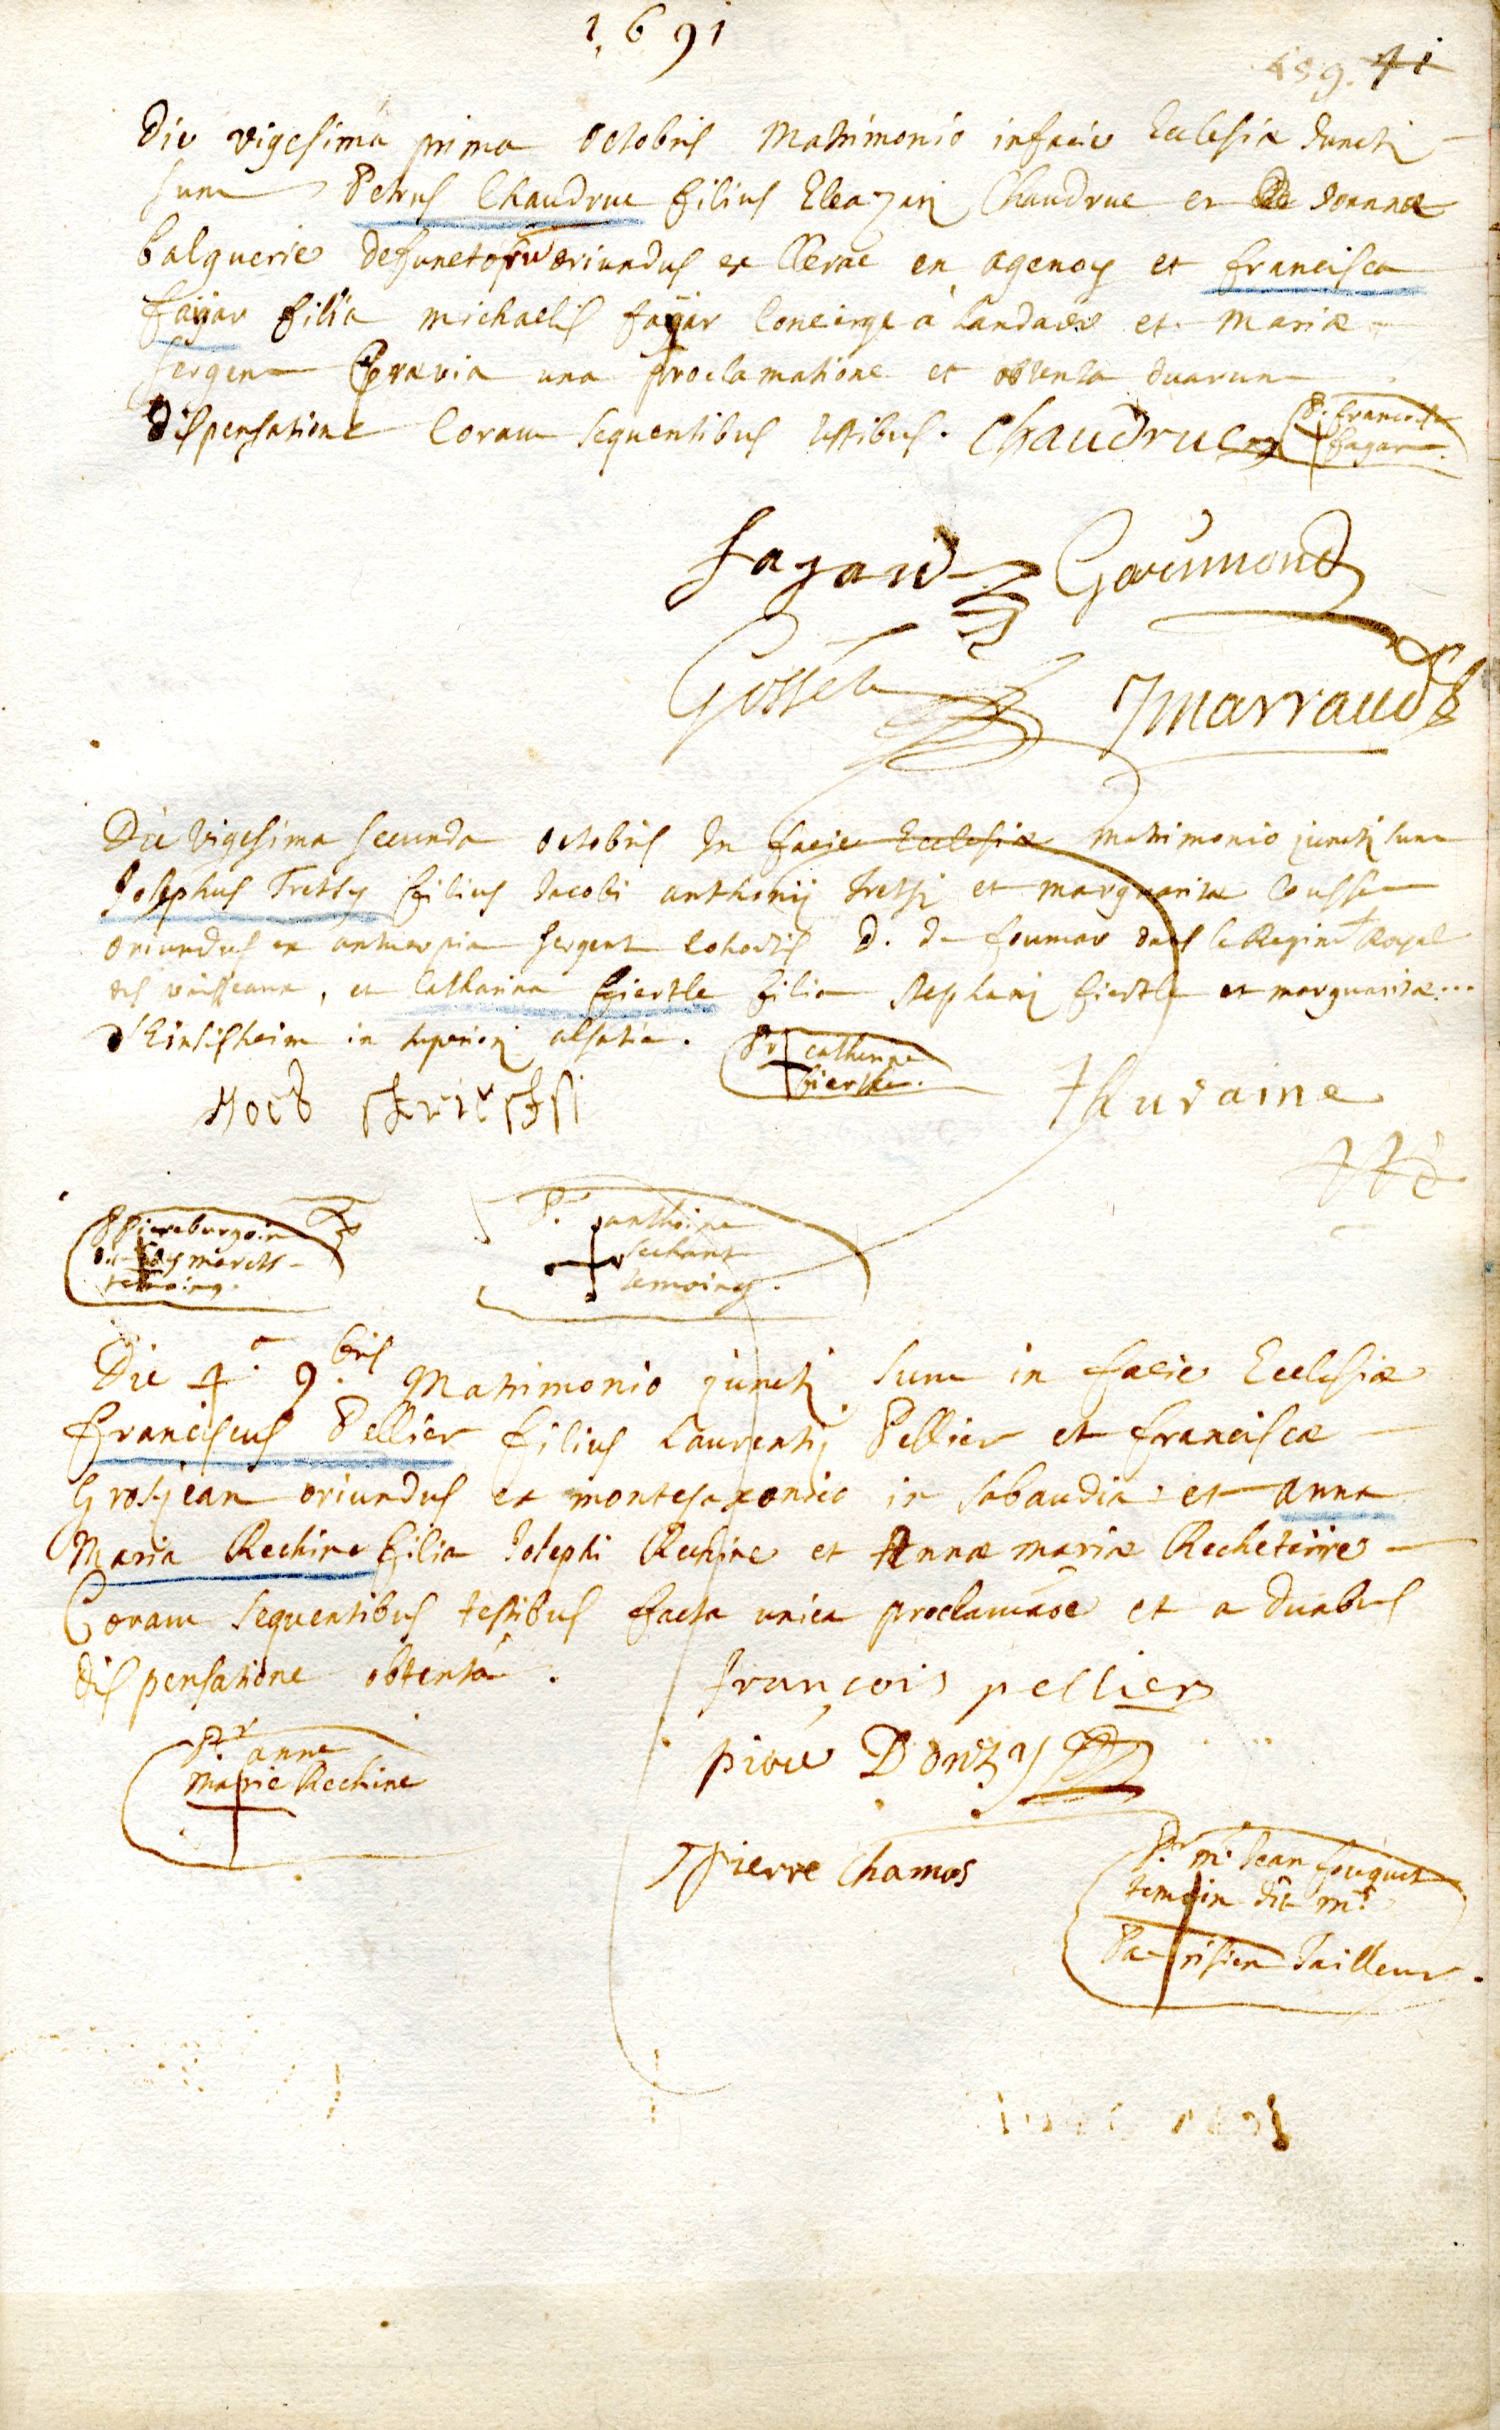 1691
159. 41
Die vigesima prima Octobris Matrimonio in facie Ecclesiæ Juncti
sunt Petrus Chaudruc filius Eleazari Chaudruc et Joannæ
balguerie defunctorũ oriundus ex Clerac en agenoy et francisca
fayar filia michaelis fayar Concierge a Landaw et Mariæ
sergent prævia una proclamatione et obtenta duarum
Dispensatione Coram sequentibus testibus. Chaudruc
P. francisca
fayar
fayard Goeumond
Gosset Jmarraud
Die Vigesima secunda Octobris In facie Ecclesiæ Matrimonio juncti sunt
Josephus Tretsy filius Jacobi anthonij Tretsi et margaritæ Coussen
oriundus ex antwerpia sergent Cohortis D. de foumar dans le Regimt Royal
des vaisseaux, et Catharina fiertle filia stephani fiertle et margaritæ...
d'Einsisheim in superiori alsatia.
Pr catherina
fiertle.
Thuraine
P piere burgoin
dit des marets
temoing.
P. anthoine
sechant
temoing.
Die 4.a 9.bris Matrimonio juncti sunt in facie Ecclesiæ
franciscus Pellier filius Laurentij Pellier et franciscæ
Grosjean oriundus ex montesaxondio in sabaudia et anna
Maria Rechine filia Josephi Rechine et Annæ mariæ Recheteirre
Coram sequentibus testibus facta unica proclamãoe et a duabus
dispensatione obtenta.
françois pellier
Pr. anne
marie Rechine
Dontzy
pierre Chamos
Pr. mr Jean fouquet
temoin dit mr
Parisien Tailleur.